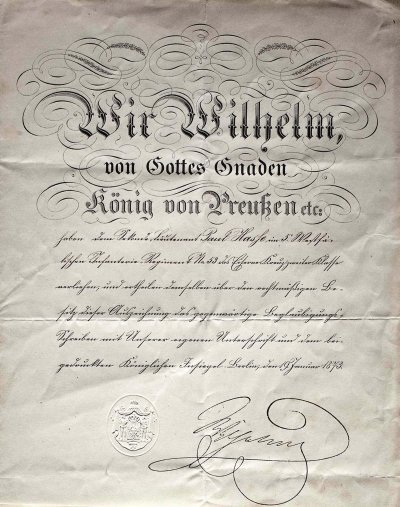 Wir Wilhelm,
von Gottes Gnaden
König von Preußen etc:
haben dem Sekonde Lieutenant Paul Hasse im 5. Westfä-
lischen Infanterie Regiment № 53 das Eiserne Kreuz zweiter Klasse
verliehen, und ertheilen demselben über den rechtmäßigen Be-
sitz dieser Auszeichnung das gegenwärtige Beglaubigungs-
Schreiben mit Unserer eigenen Unterschrift und dem bei-
gedruckten Königlichen Insiegel. Berlin, den 19. Januar 1873.
Wilhelm